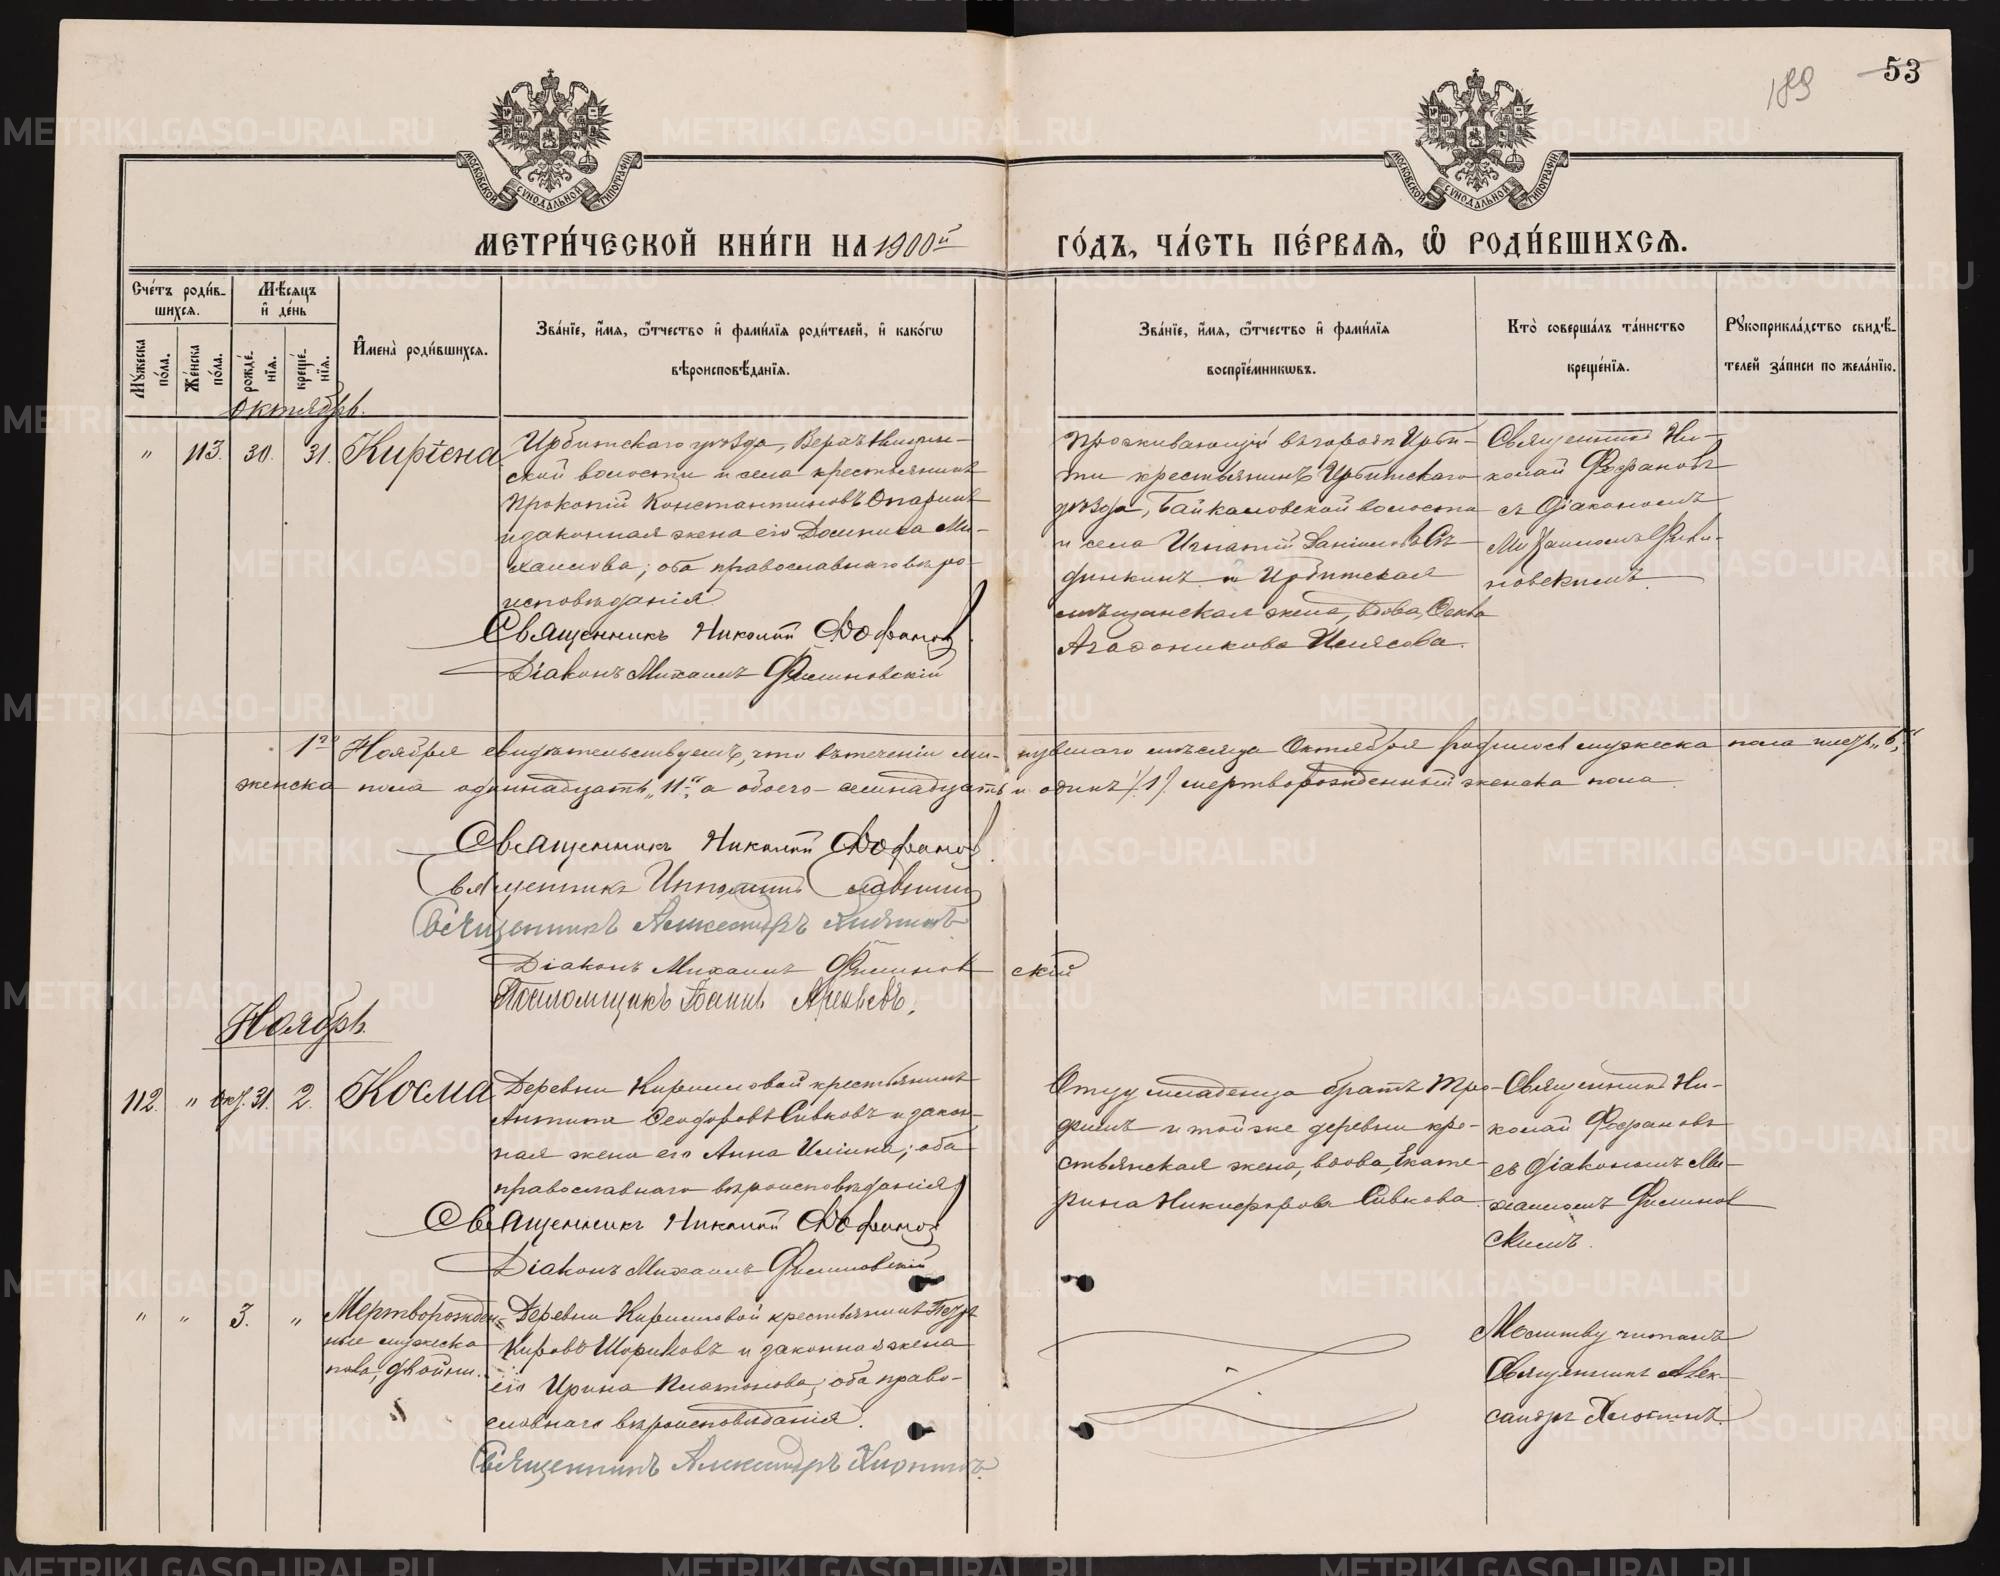 189
53
МОСКОВСКОЙ СѴНОДАЛЬНОЙ ТИПОГРАФІИ
МОСКОВСКОЙ СѴНОДАЛЬНОЙ ТИПОГРАФІИ
МЕТРИ́ЧЕСКОЙ КНИ́ГИ НА 1900й ГО́ДЪ, ЧА́СТЬ ПЕ́РВАѦ, Ѡ҆ РОДИ́ВШИХСѦ.
Сче́тъ роди́в-
шихсѧ.
Мѣ́сѧцъ
и҆ де́нь
Му́жеска по́ла.
Же́нска по́ла.
рожде́нїѧ.
креще́нїѧ.
И҆мена̀ роди́вшихсѧ.
Зва́нїе, и҆́мѧ, ѻ҆́тчество и҆ фами́лїѧ роди́телей, и҆ како́гѡ
вѣроисповѣ́данїѧ.
Зва́нїе, и҆́мѧ, ѻ҆́тчество и҆ фами́лїѧ
воспрїе́мникѡвъ.
Кто̀ соверша́лъ та́инство
креще́нїѧ.
Рꙋкоприкла́дство свидѣ́-
телей за́писи по жела́нїю.
Октябрь.
" 113. 30. 31. Киріена
Ирбитскаго уѣзда, Верхъ-Ницин-
ской волости и села крестьянинъ
Прокопій Константиновъ Опаринъ
и законная жена его Домника Ми-
хаилова; оба православнаго вѣро-
исповѣданія.
Священникъ Николай Фофановъ
Діаконъ Михаилъ Филиновскій
Проживающій въ городѣ Ирби-
ти крестьянинъ Ирбитскаго
уѣзда, Байкаловской волости
и села Игнатій Даніиловъ
и Ирбитская
мѣщанская жена, вдова,
Агафоникова
Священникъ Ни-
колай Фофановъ
съ Діакономъ
Михаиломъ Фили-
новскимъ.
1го Ноября свидѣтельствуемъ, что въ теченіи ми- нувшаго мѣсяца Октября родилось мужеска пола шесть "6,"
женска пола одиннадцать "11", а обоего - семнадцать и одинъ /1/ мертворожденный женска пола.
Священникъ Николай Фофановъ.
Священникъ Ипполитъ Славнинъ
Священникъ Александръ Хлопинъ
Діаконъ Михаилъ Филинов скій
Псаломщикъ Іоаннъ
Ноябрь.
112. " Окт. 31. 2. Косма
Деревни Кирилловой крестьянинъ
Антипа Ѳеодоровъ Сивковъ и закон-
ная жена его Анна Иліина; оба
православнаго вѣроисповѣданія.
Священникъ Николай Фофановъ
Діаконъ Михаилъ Филиновскій
Отцу младенца братъ Тро-
фимъ и той же деревни кре-
стьянская жена, вдова, Екате-
рина Никифорова Сивкова.
Священникъ Ни-
колай Фофановъ
съ Діакономъ Ми-
хаиломъ Филинов
скимъ.
" " 3. " Мертворожден-
ные мужеска
пола, двойни.
Деревни Кирилловой крестьянинъ Петръ
Кировъ Шориковъ и законная жена
его Ирина Платонова; оба право-
славнаго вѣроисповѣданія.
Священникъ Александръ Хлопинъ.
Молитву читалъ
Священникъ Алек-
сандръ Хлопинъ.
METRIKI.GASO-URAL.RU